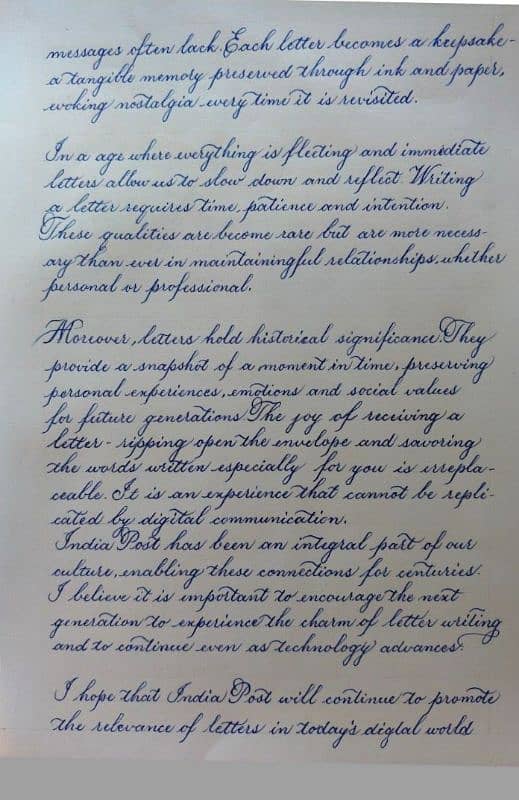 messages often lack. Each letter becomes a keepsake-
a tangible memory preserved through ink and paper,
evoking nostalgia every time it is revisited.
In a age where everything is fleeting and immediate
letters allow us to slow down and reflect. Writing
a letter requires time, patience and intention.
These qualities are become rare but are more necess-
ary than ever in maintainingful relationships, whether
personal or professional.
Moreover, letters hold historical significance. They
provide a snapshot of a moment in time, preserving
personal experiences, emotions and social values
for future generations The joy of receiving a
letter - ripping open the envelope and savoring
the words written especially for you is irrepla-
ceable. It is an experience that cannot be repli-
cated by digital communication.
India Post has been an integral part of our
culture, enabling these connections for centuries.
I believe it is important to encourage the next
generation to experience the charm of letter writing
and to continue even as technology advances.
I hope that India Post will continue to promote
the relevance of letters in today's digtal world